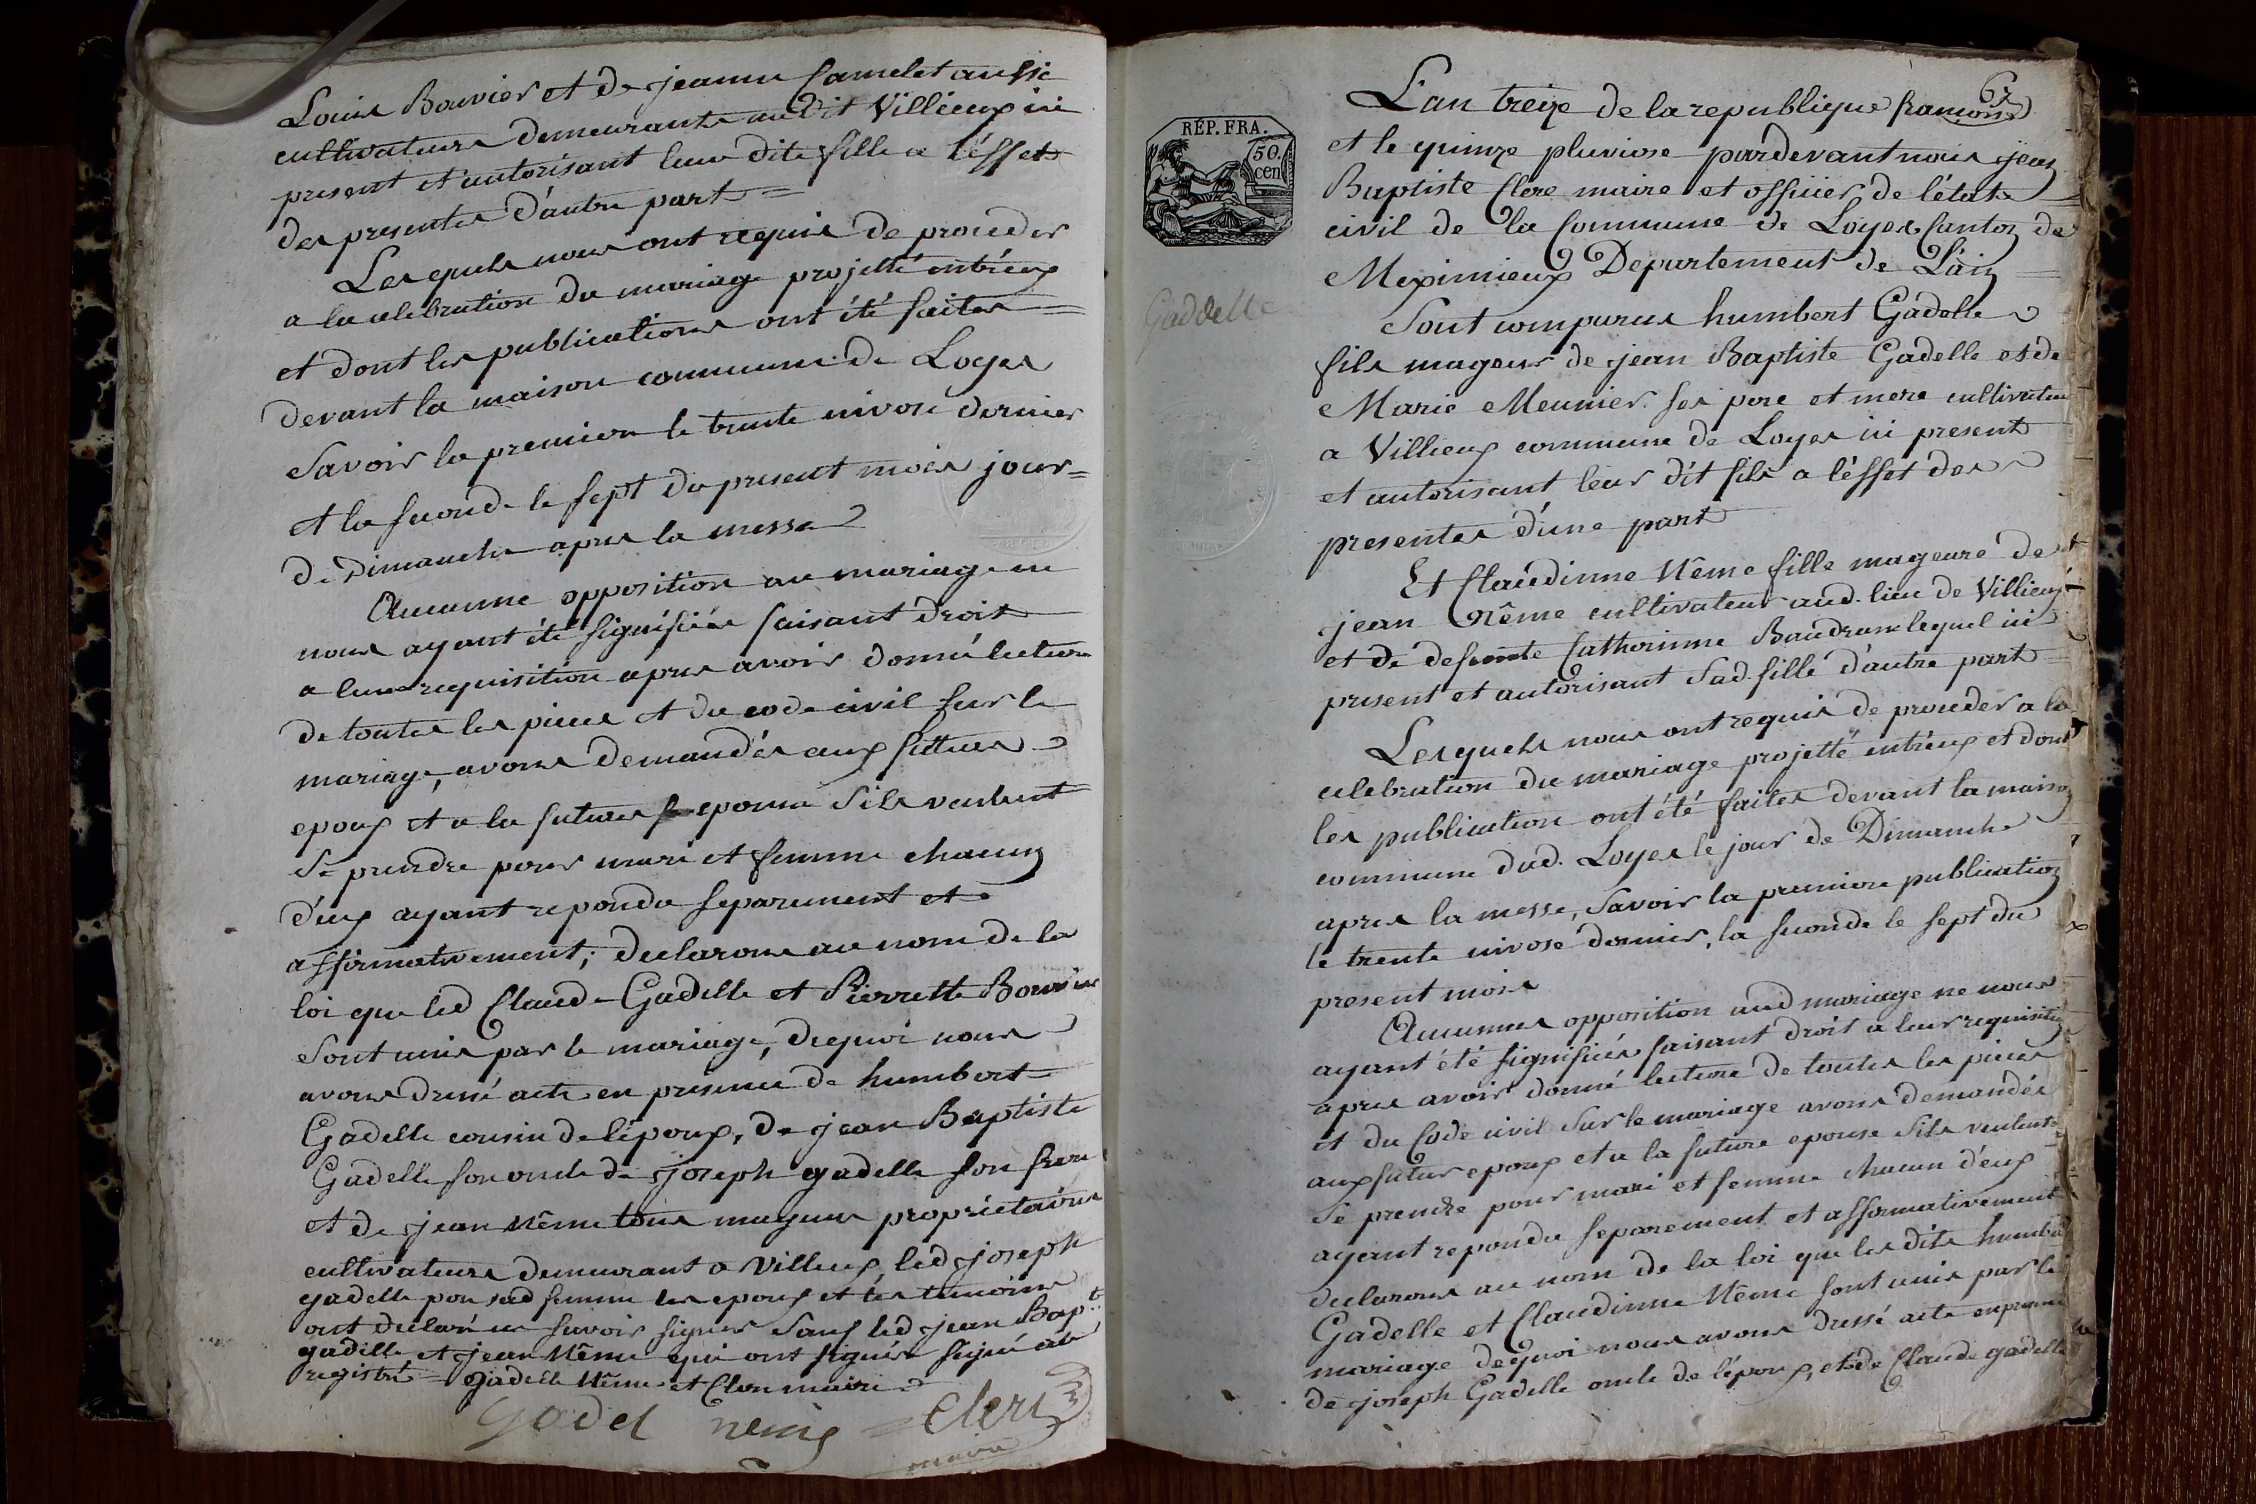 Louis Bouvier et de jeanne Camelet aussi
cultivateurs demeurants audit Villieux ici
present et autorisant leur dite fille a l'éffet
des presentes d'autre part =
Lesquels nous ont requis de proceder
a la celebration du mariage projetté entr'eux
et dont les publications ont été faites =
devant la maison commune de Loyes
Savoir la premiere le trente nivose dernier
et la seconde le sept du present mois jour =
de Dimanche apres la messe
Aucunne opposition au mariage ne
nous ayant été signifiée faisant droit
a leur requisition apres avoir donné lecture
de toutes les pieces et du code civil sur le
mariage, avons demandés aux futurs
epoux et a la future epouse Sils veulent
Se prendre pour mari et femme chacun
d'eux ayant repondu separement et
affirmativement; declarons au nom de la
loi que led Claude Gadelle et Pierrette Bouvier
Sont unis par le mariage, dequoi nous
avons dressé acte en presence de humbert
Gadelle cousin de lépoux, de jean Baptiste
Gadelle son oncle de joseph gadelle son frere
et de jean Nême tous mageurs propriétaires
cultivateurs demeurant a Villieux, led joseph
gadelle sad femme les epoux et les temoins
ont declaré ne savoir signer Sauf led jean Bapte
gadelle et jean Nême qui ont signés Sujné au
registre = gadelle Nême et Clere maire
Gadel neme = Clere
maire
67
L'an treize de la republique francoise
et le quinze pluviose pardevant nous jean
Baptiste Clere maire et officier de l'état
civil de la Commune de Loyes Canton de
Meximieux Departement de L'ain =
REP. FRA.
50.
cen
Gaddelle
Sont comparus humbert Gadelle
fils mageur de jean Baptiste Gadelle et de
Marie Meunier ses pere et mere cultivateurs
a Villieux commune de Loyes ici present
et autorisant leur dit fils a léffet des
presentes d'une part
Et Claudinne Nême fille mageure de
jean Nême cultivateur aud. lieu de Villieux
et de defunte Catherinne Baudran lequel ici
present et autorisant Sad. fille d'autre part =
Lesquels nous ont requis de proceder a la
celebration du mariage projetté entr'eux et dont
les publication ont été faites devant la maison
commune dud. Loyes le jour de Dimanche
apres la messe, Savoir la premiere publication
le trente nivose dernier, la seconde le sept du
present mois
Aucunnes opposition aud mariage ne nous
ayant été signifiées faisant droit a leur requisition
apres avoir donné lecture de toutes les pieces
et du Code civil Sur le mariage avons demandés
aux futur epoux et a la future epouse Sils veulent
Se prendre pour mari et femme chacun d'eux
ayant repondu separement et affirmativement
declarons au nom de la loi que les dits humbert
Gadelle et Claudinne Nême sont unis par le
mariage dequoi nous avons dressé acte en presence
de joseph Gadelle oncle de lépoux, et de Claude gadelle